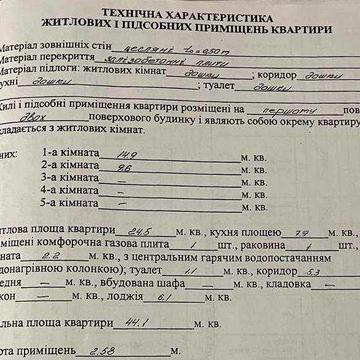 ТЕХНІЧНА ХАРАКТЕРИСТИКА
ЖИТЛОВИХ І ПІДСОБНИХ ПРИМІЩЕНЬ КВАРТИРИ
Матеріал зовнішніх стін цегляні
Матеріал перекриття залізобетонні плити
Матеріал підлоги: житлових кімнат дошки; коридор дошки
кухні дошки; туалет дошки
Жилі і підсобні приміщення квартири розміщені на першому пов
двох поверхового будинку і являють собою окрему квартиру
складається з житлових кімнат.
них: 1-а кімната 14,9 м. кв.
2-а кімната 9,6 м. кв.
3-а кімната — м. кв.
4-а кімната — м. кв.
5-а кімната — м. кв.
тлова площа квартири 24,5 м. кв., кухня площею 7,9 м. кв.,
міщені комфорочна газова плита 1 шт., раковина 1 шт.,
ната 2.2 м. кв., з центральним гарячим водопостачанням
донагрівною колонкою); туалет 1.1 м. кв., коридор 5.3
едня — м. кв., вбудована шафа — м. кв., кладовка —
кон — м. кв., лоджія 6,1 м. кв.
льна площа квартири 44.1 м. кв.
ота приміщень 2.58 м.